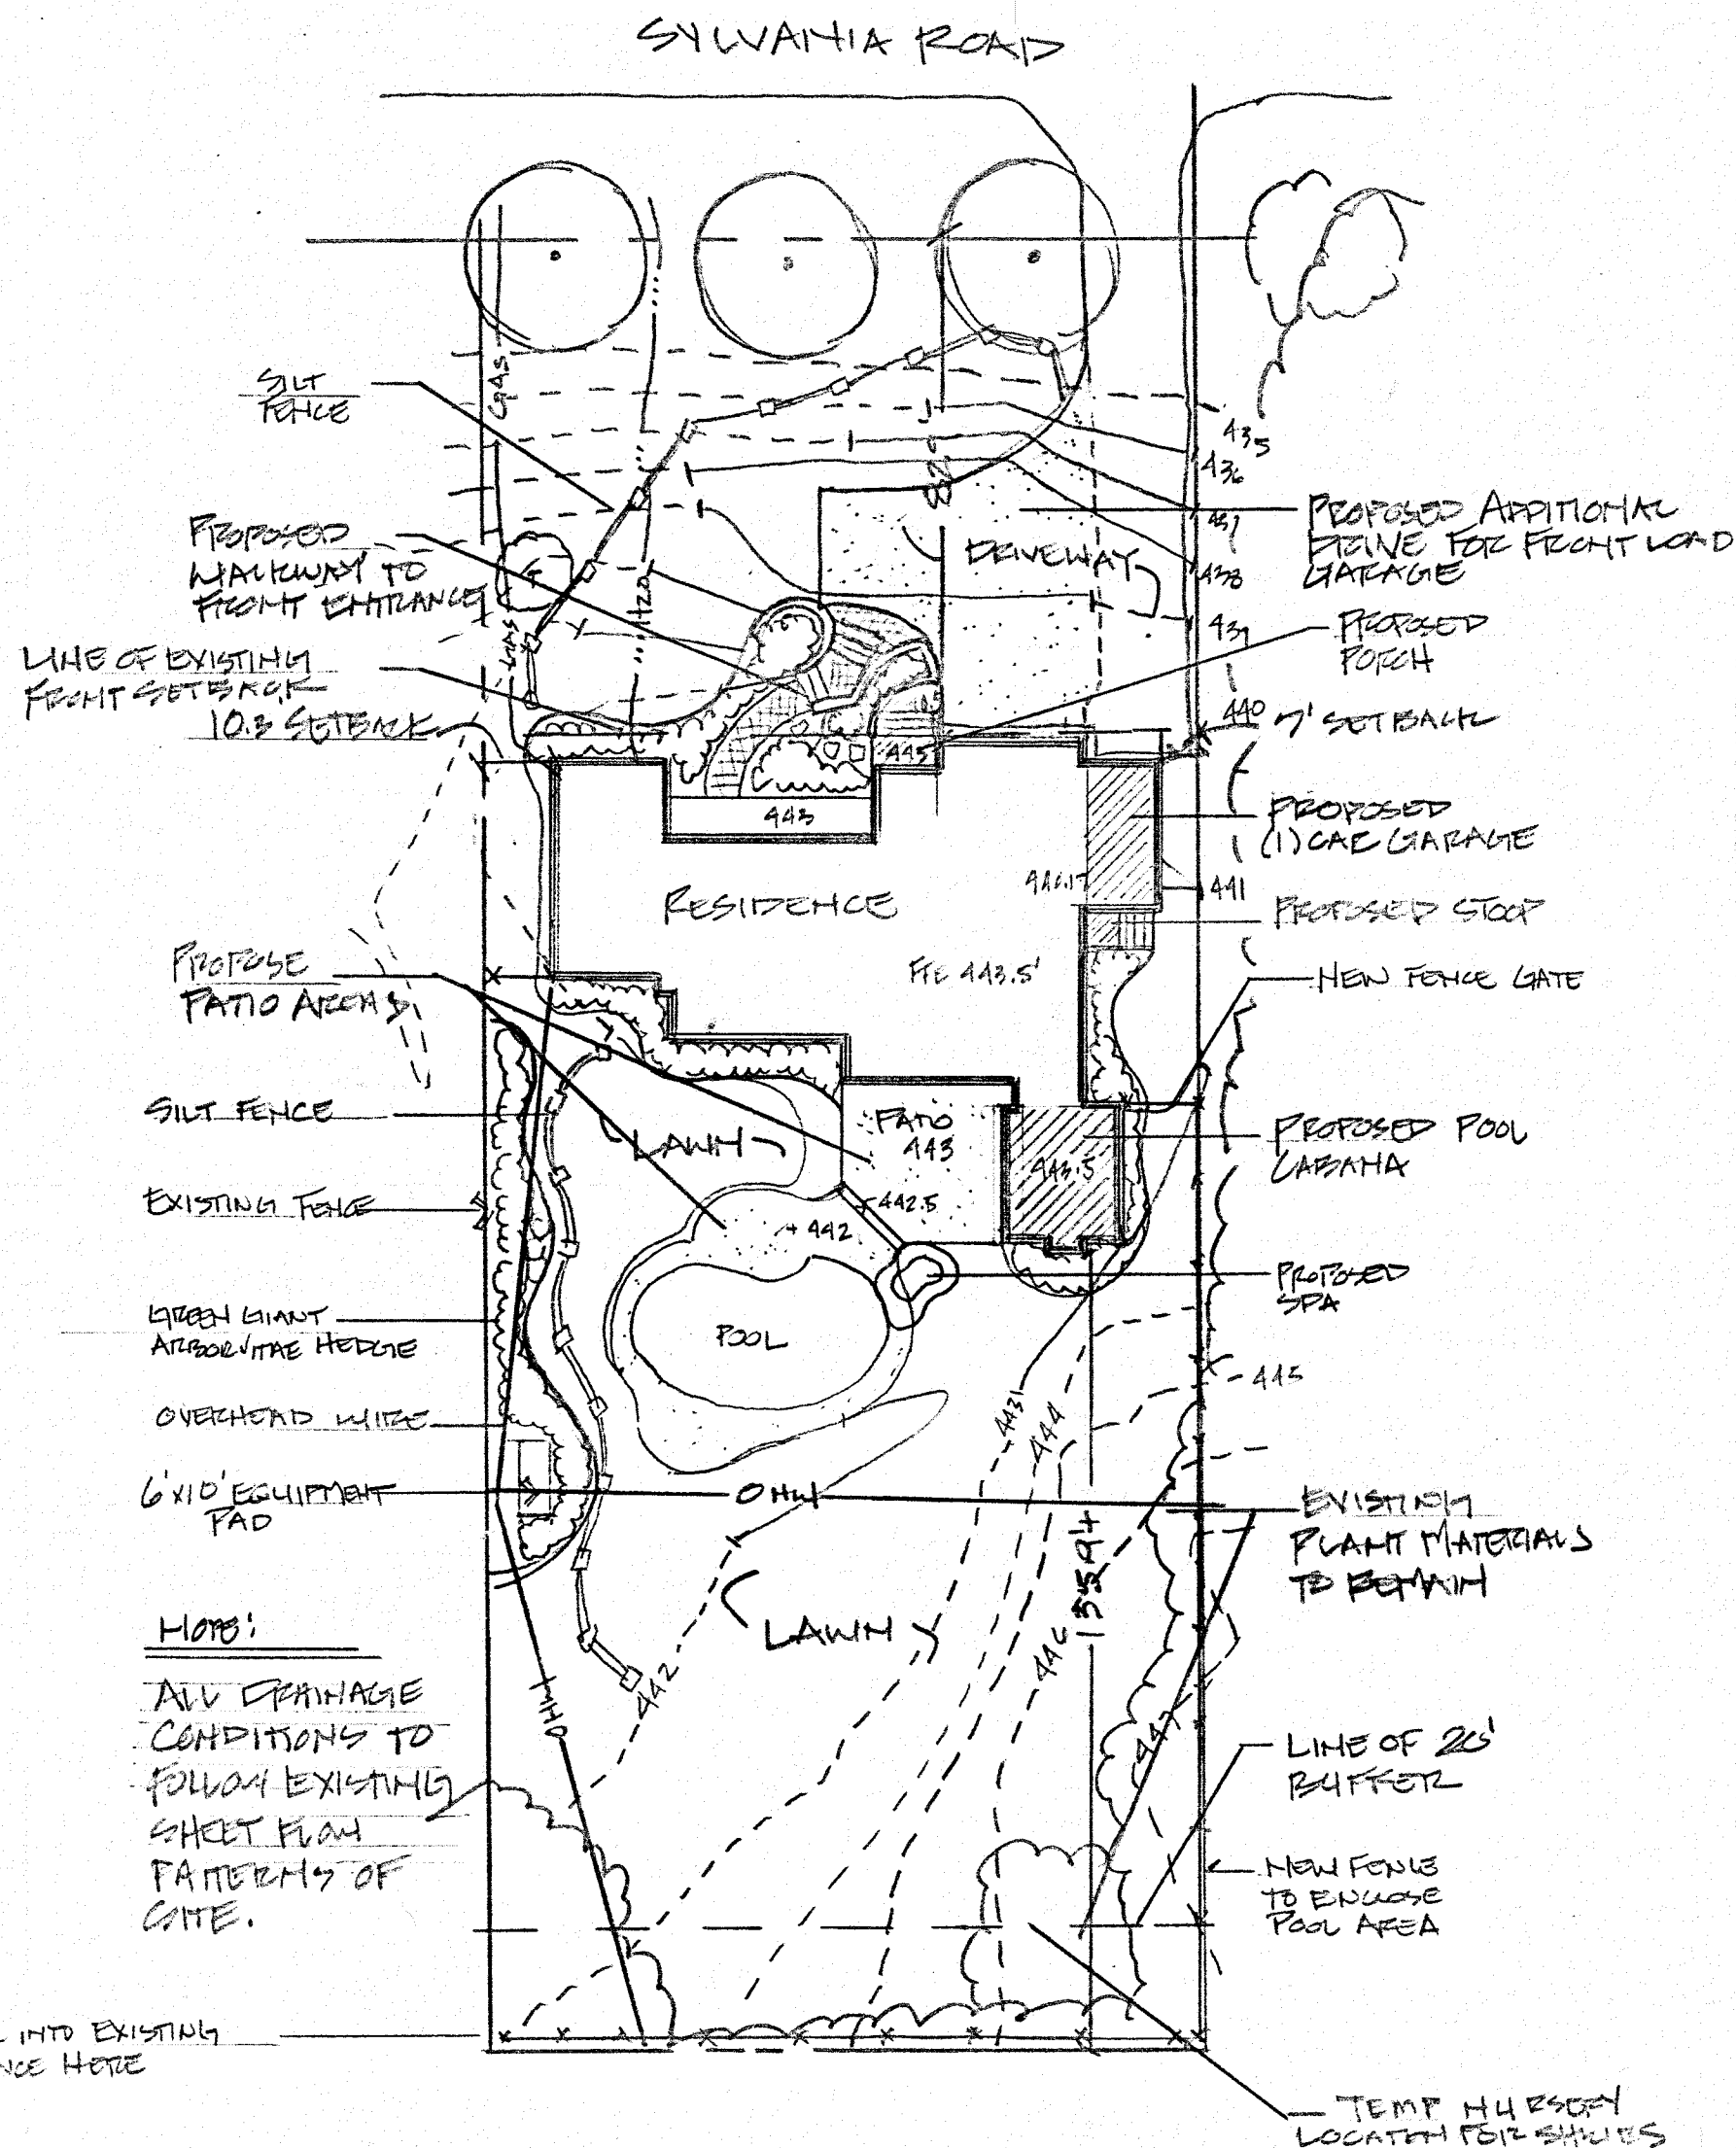 SYLVANIA ROAD
SILT
FENCE
GAS
435
436
437
438
439
440
441
PROPOSED ADDITIONAL
DRIVE FOR FRONT LOAD
GARAGE
DRIVEWAY
PROPOSED
WALKWAY TO
FRONT ENTRANCE
H20
GAS
PROPOSED
PORCH
LINE OF EXISTING
FRONT SETBACK
10.3 SETBACK
7' SETBACK
445
443
PROPOSED
(1) CAR GARAGE
RESIDENCE
PROPOSED STOOP
FFE 443.5'
NEW FENCE GATE
PROPOSE
PATIO AREAS
SILT FENCE
LAWN
PATIO
443
443.5
PROPOSED POOL
CABANA
EXISTING FENCE
442.5
+442
PROPOSED
SPA
GREEN GIANT
ARBORVITAE HEDGE
POOL
445
443
444
OVERHEAD WIRE
6'X10' EQUIPMENT
PAD
OHW
EXISTING
PLANT MATERIALS
TO REMAIN
LAWN
442
446
447
OHW
NOTE:
ALL DRAINAGE
CONDITIONS TO
FOLLOW EXISTING
SHEET FLOW
PATTERNS OF
SITE.
LINE OF 20'
BUFFER
NEW FENCE
TO ENCLOSE
POOL AREA
INTO EXISTING
HERE
TEMP NURSERY
LOCATION FOR